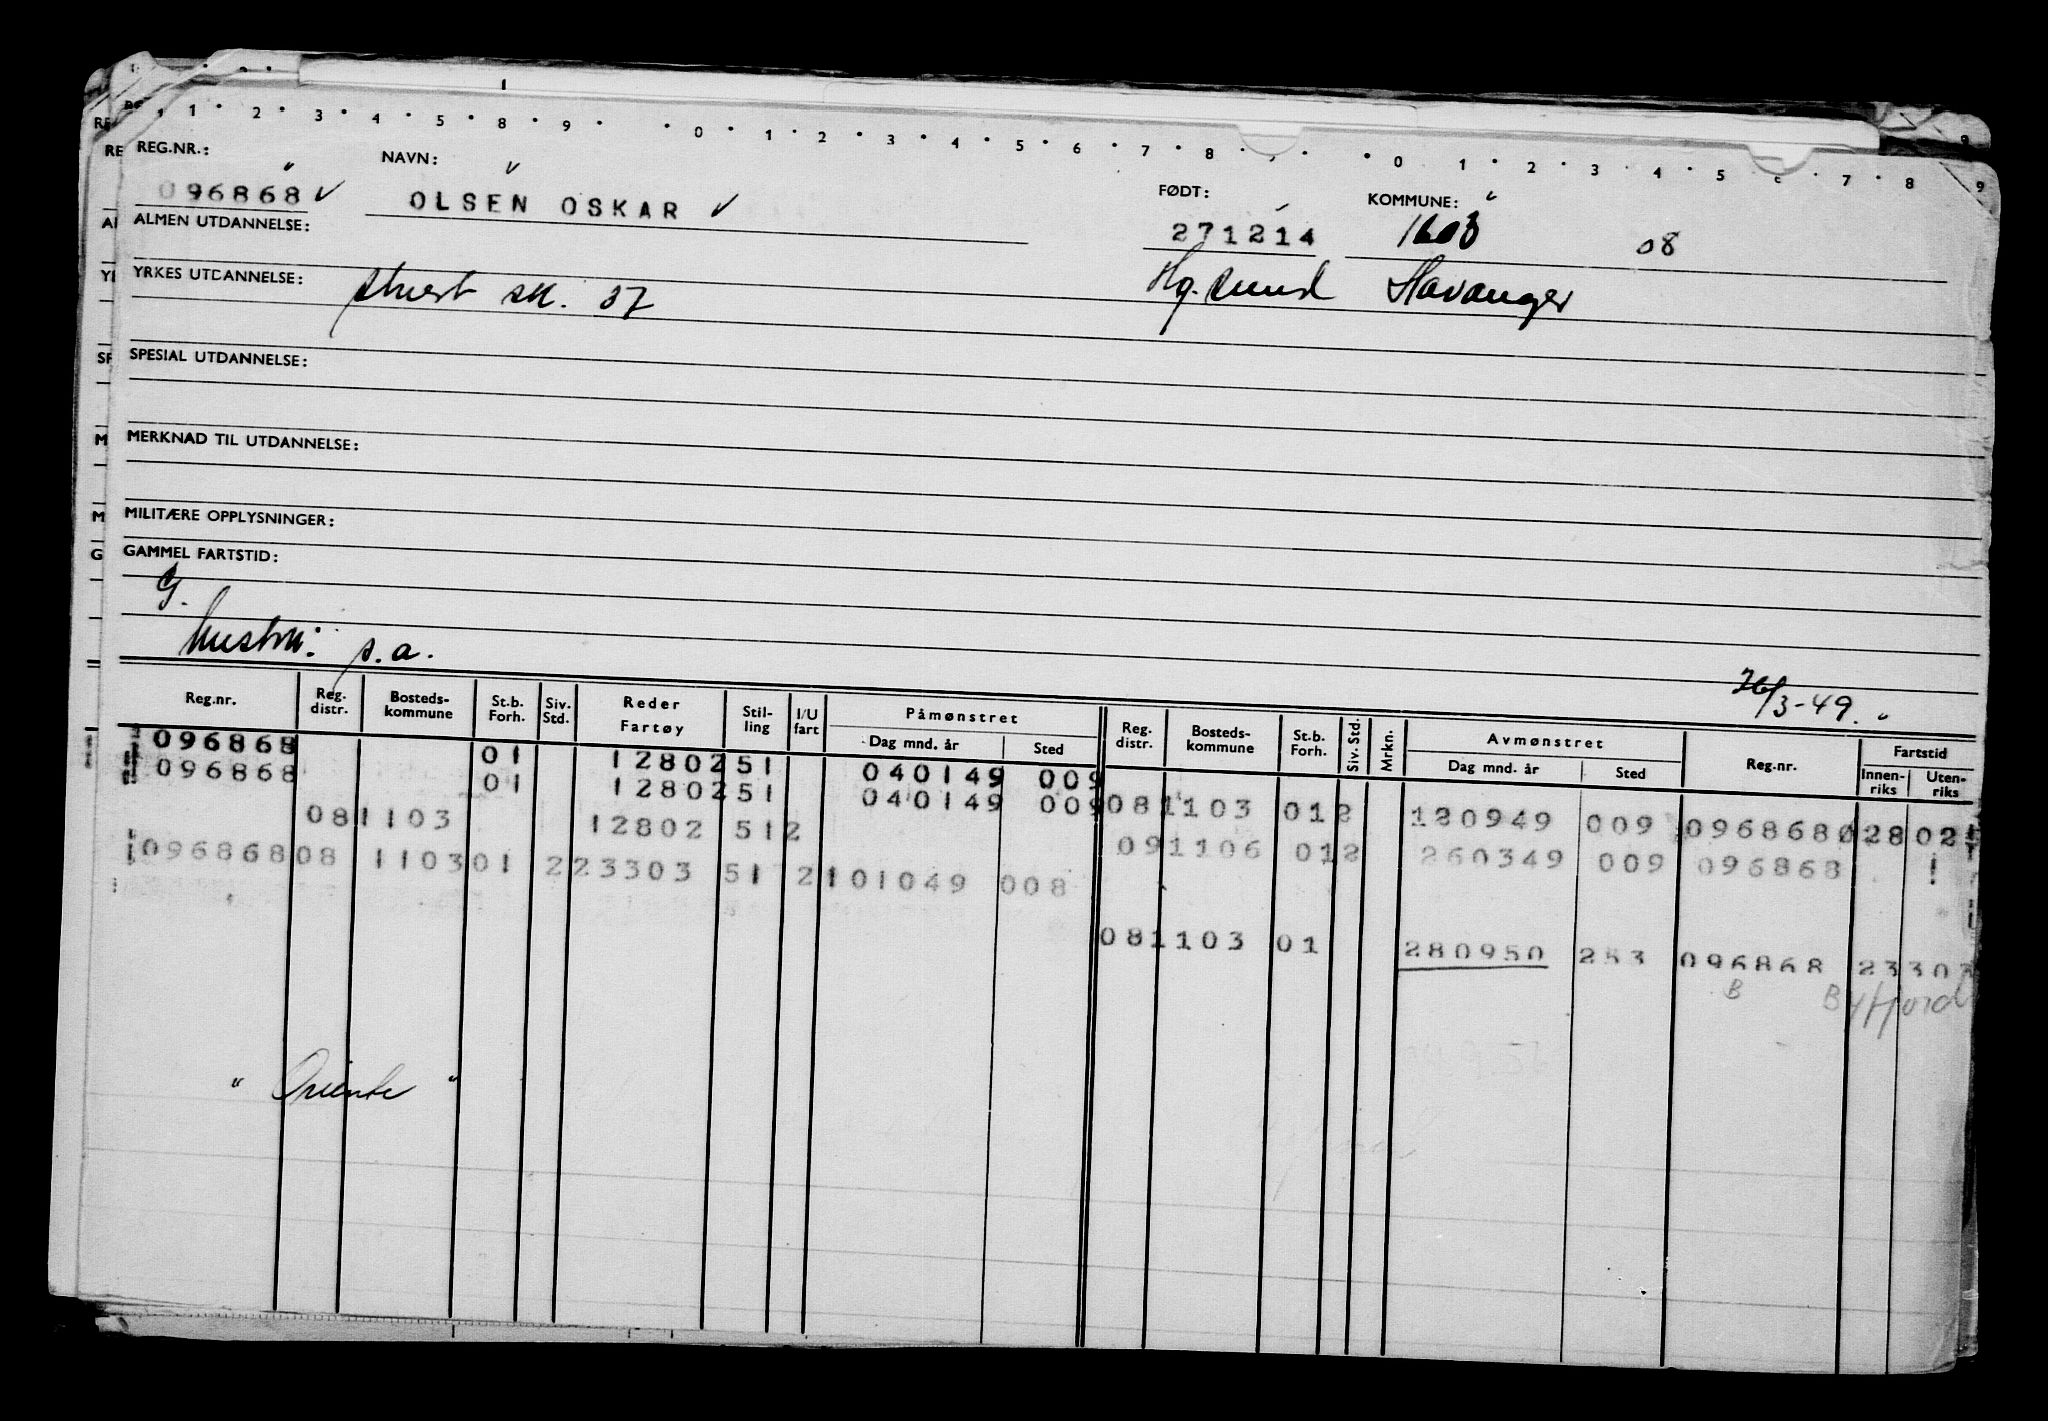 1 2 3 4 5 6 7 8 9 0 1 2 3 4 5 6 7 8 9 0 1 2 3 4 5 6 7 8 9
REG.NR.: NAVN: FØDT: KOMMUNE:
096868 OLSEN OSKAR 271214 1603 08
ALMEN UTDANNELSE:
Hg.sund Stavanger
YRKES UTDANNELSE: stuert sk. 37
SPESIAL UTDANNELSE:
MERKNAD TIL UTDANNELSE:
MILITÆRE OPPLYSNINGER:
GAMMEL FARTSTID:
G.
hustru: s.a.
26/3-49.
Reg.nr. Reg. distr. Bosteds- kommune St.b. Forh. Siv. Std. Reder Fartøy Stil- ling I/U fart Påmønstret Dag mnd. år Sted Reg. distr. Bosteds- kommune St.b. Forh. Siv. Std. Mrkn. Avmønstret Dag mnd. år Sted Reg.nr. Fartstid Innen- riks Uten- riks
096868 01 12802 51 040149 009
096868 01 12802 51 040149 009 081103 012 120949 009 096868 028 02
081103 12802 512 091106 012 260349 009 096868
096868 08 1103 01 2 23303 51 2 101049 008
081103 01 280950 253 096868 23303
B Byfjord
" Oriente "